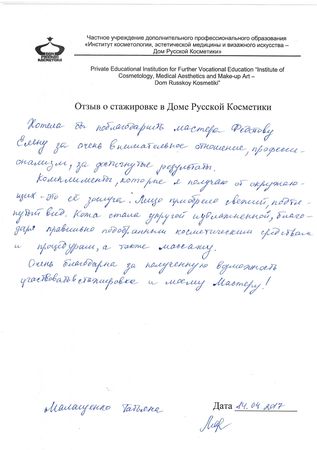 Частное учреждение дополнительного профессионального образования
«Институт косметологии, эстетической медицины и визажного искусства –
Дом Русской Косметики»
Private Educational Institution for Further Vocational Education "Institute of
Cosmetology, Medical Aesthetics and Make-up Art –
Dom Russkoy Kosmetiki"
Отзыв о стажировке в Доме Русской Косметики
Хотела бы поблагодарить мастера Федотову
Елену за очень внимательное отношение, професси-
онализм, за достигнутые результаты.
Комплименты, которые я получаю от окружаю-
щих - это её заслуга! Лицо приобрело свежий, подтя-
нутый вид. Кожа стала упругой и увлажненной, благо-
даря правильно подобранным косметическим средствам
и процедурам, а также массажу.
Очень благодарна за полученную возможность
участвовать в стажировке и моему Мастеру!
Малащенко Татьяна
Дата 24.04.2017